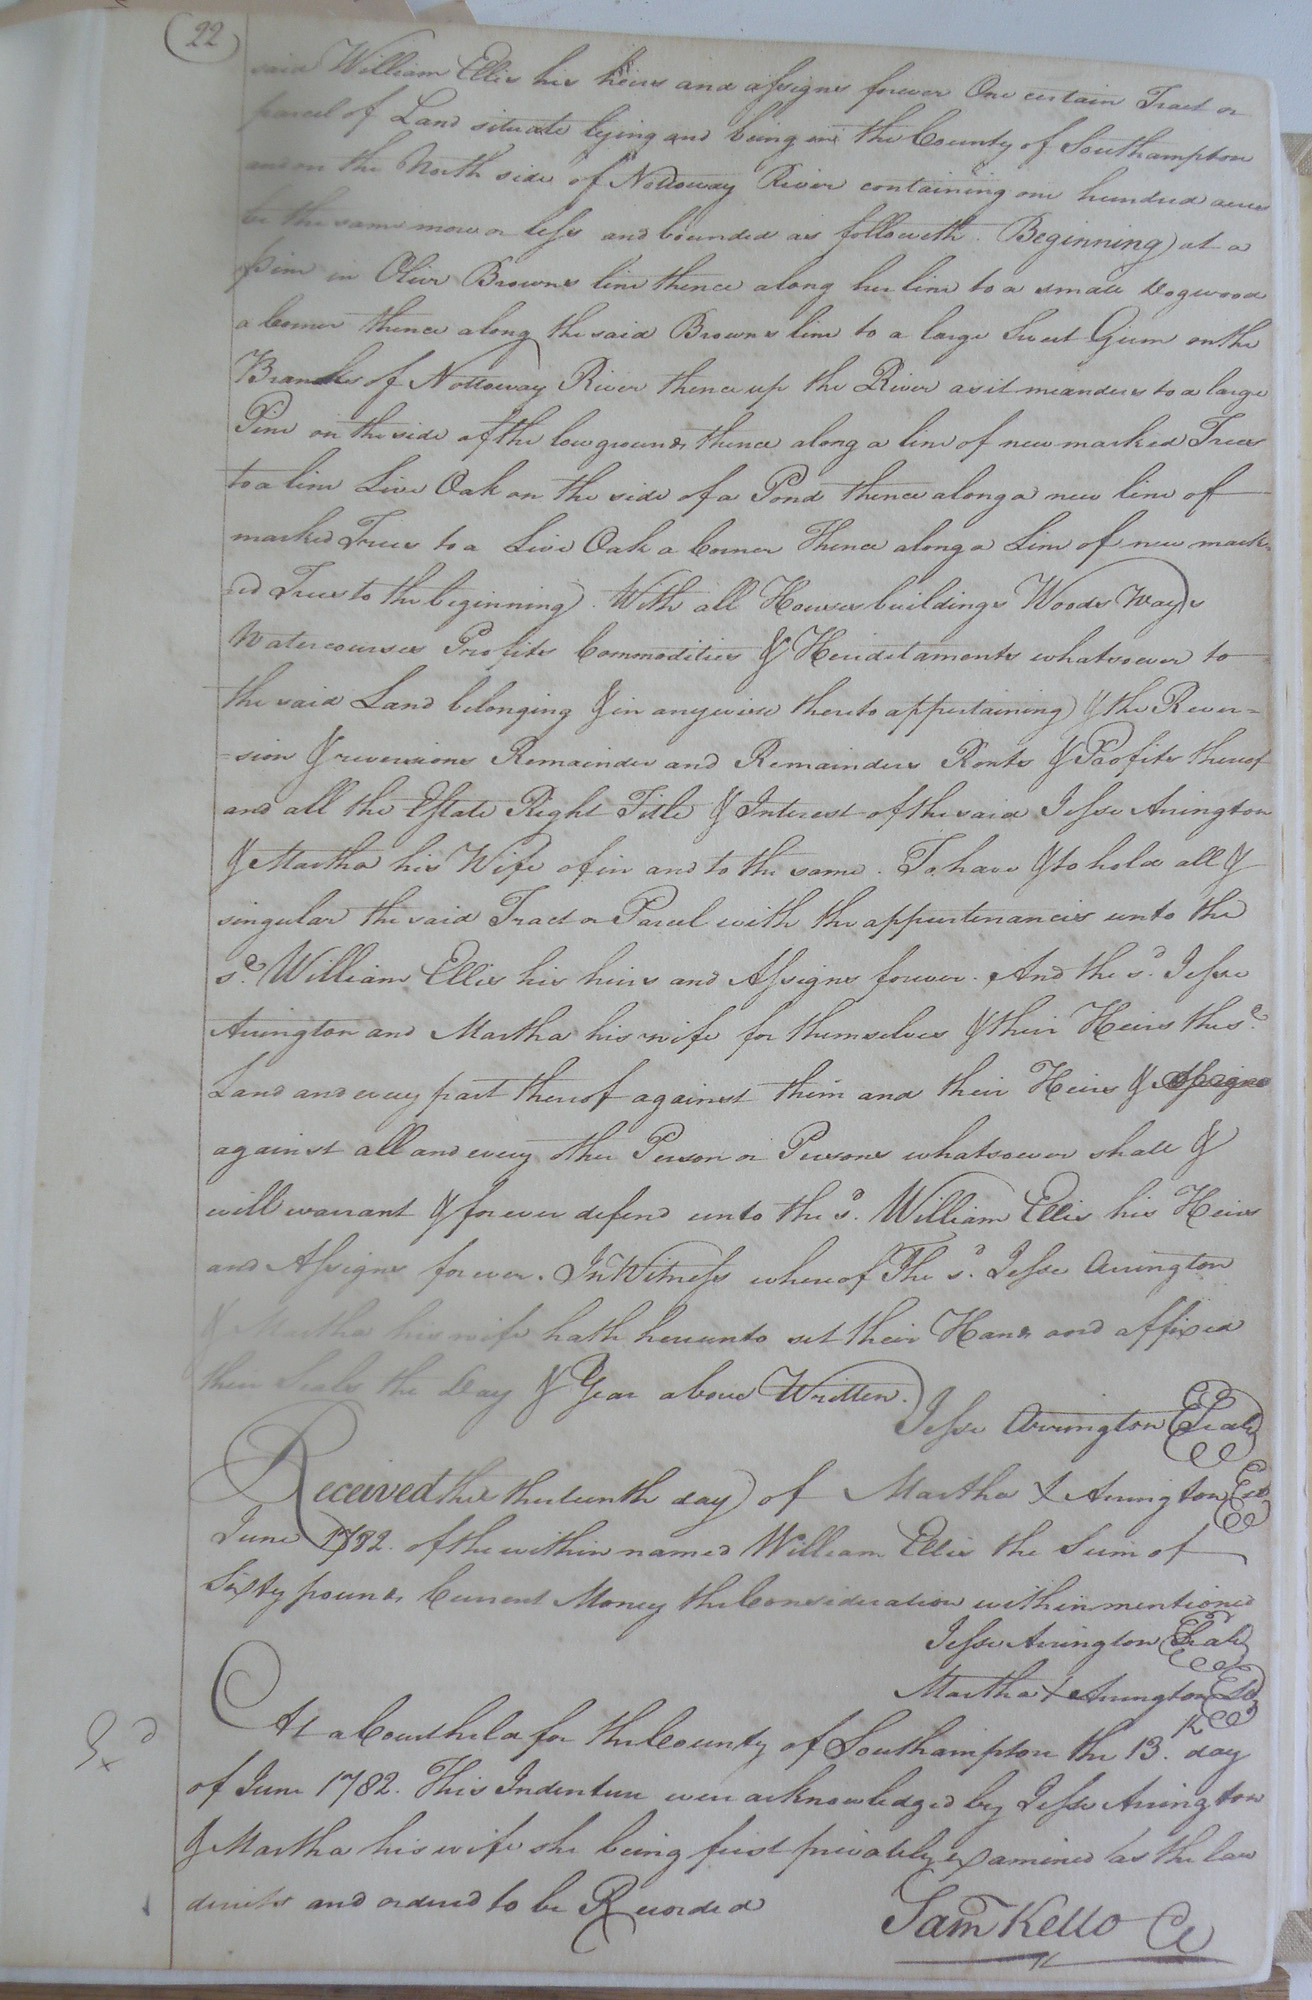 22
said William Ellis his heirs and assigns forever One certain Tract or
parcel of Land situate lying and being in the County of Southampton
and on the North side of Nottoway River containing one hundred acres
be the same more or less and bounded as followeth. Beginning at a
pine in Olive Browns line thence along her line to a small Dogwood
a Corner thence along the said Browns line to a large Sweet Gum on the
Branches of Nottoway River thence up the River as it meanders to a large
Pine on the side of the low grounds thence along a line of new marked Trees
to a line Live Oak on the side of a Pond thence along a new line of
marked Trees to a Live Oak a Corner Thence along a Line of new mark=
=ed Trees to the beginning. With all Houses buildings Woods Ways
Watercourses Profits Commodities & Heriditaments whatsoever to
the said Land belonging & in anywise thereto appertaining & the Rever=
=sion & reversions Remainder and Remainders Rents & Profits thereof
and all the Estate Right Title & Interest of the said Jesse Arrington
& Martha his Wife of in and to the same. To have & to hold all &
singular the said Tract or Parcel with the appurtenances unto the
sd. William Ellis his heirs and Assigns forever. And the sd. Jesse
Arrington and Martha his wife for themselves & their Heirs the sd.
Land and every part thereof against them and their Heirs &
against all and every other Person or Persons whatsoever shall &
will warrant & forever defend unto the sd. William Ellis his Heirs
and Assigns forever. In Witness whereof The sd. Jesse Arrington
& Martha his wife hath hereunto set their Hands and affixed
their Seals the Day & Year above Written.
Jesse Arrington Seal
Received the thirteenth day of Martha X Arrington Seal
June 1782. of the within named William Ellis the Sum of
Sixty pounds Current Money the Consideration within mentioned
Jesse Arrington Seal
Martha X Arrington Seal
At a Court held for the County of Southampton the 13th. day
of June 1782. This Indenture were acknowledged by Jesse Arrington
& Martha his wife she being first privately examined as the law
directs and ordered to be Recorded
Exd
Sam Kello CC